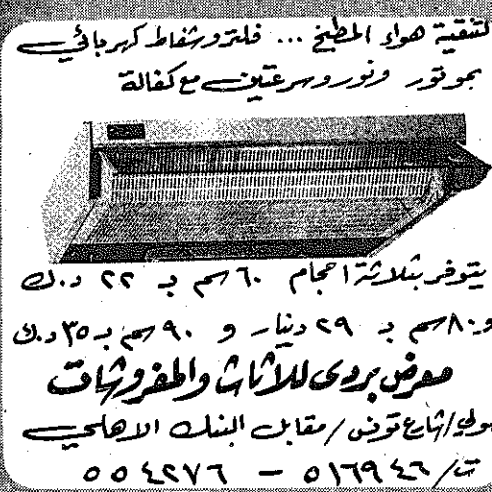 لتنقية هواء المطبخ ... فلتر وشفاط كهربائي
بموتور ونور وسرعتين مع كفالة
يتوفر بثلاثة احجام ٦٠ سم بـ ٢٢ د.ك
و ٨٠ سم بـ ٢٩ دينار و ٩٠ سم بـ ٣٥ د.ك
معرض بردى للأثاث والمفروشات
حولي / شارع تونس / مقابل البنك الاهلي
ت / ٥١٦٩٤٦ - ٥٥٤٢٧٦